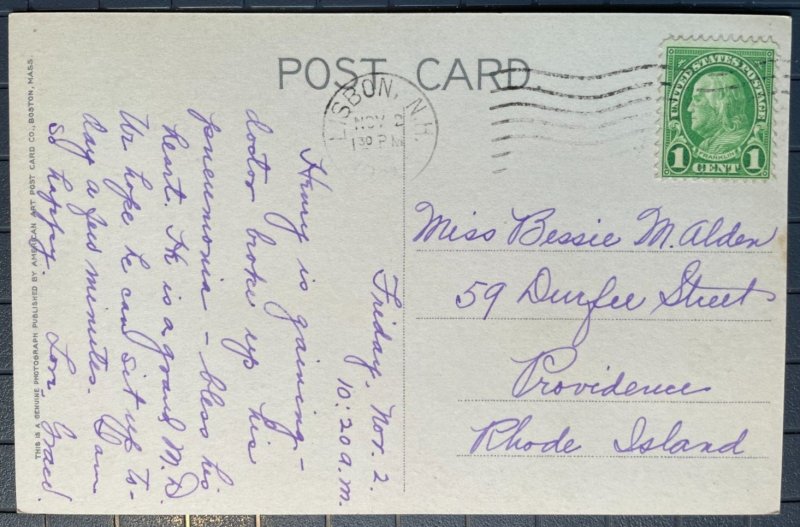 POST CARD
LISBON, N.H.
NOV 2
1 30 PM
UNITED STATES POSTAGE
FRANKLIN
1 CENT 1
Miss Bessie M. Alden
59 Durfee Street
Providence
Rhode Island
Friday, Nov. 2.
10:20 a.m.
Henry is gaining –
doctor broke up his
pneumonia – bless his
heart. He is a grand M.D.
We hope he can sit up to-
day a few minutes. I am
so happy. Love, Grace.
THIS IS A GENUINE PHOTOGRAPH PUBLISHED BY AMERICAN ART POST CARD CO., BOSTON, MASS.